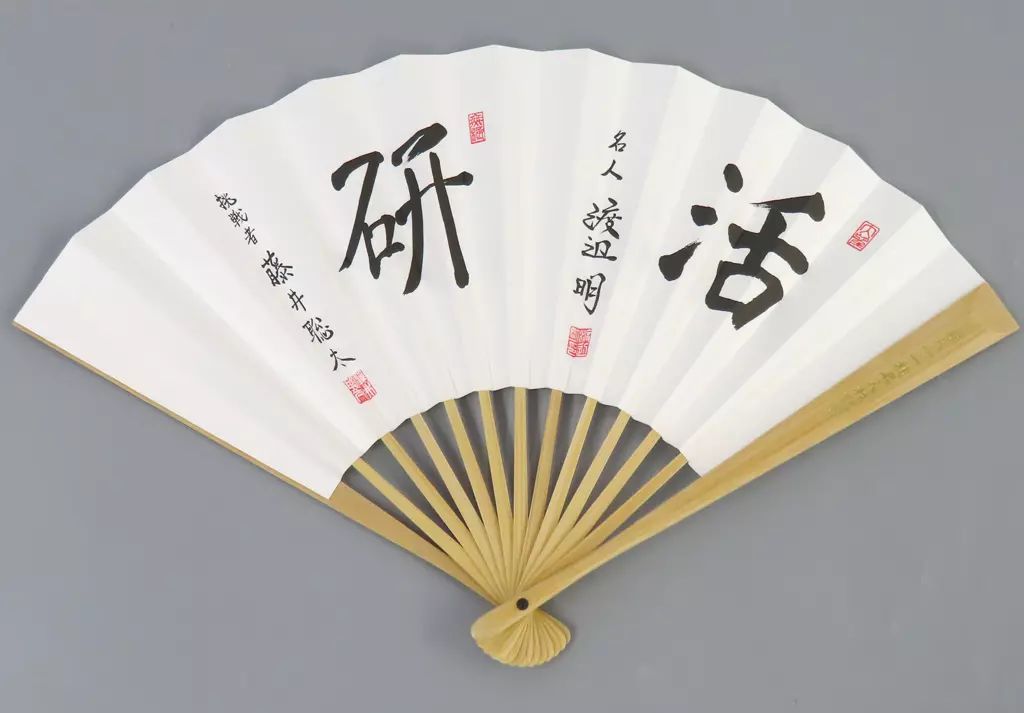 活
名人 渡辺明
研
挑戦者 藤井聡太